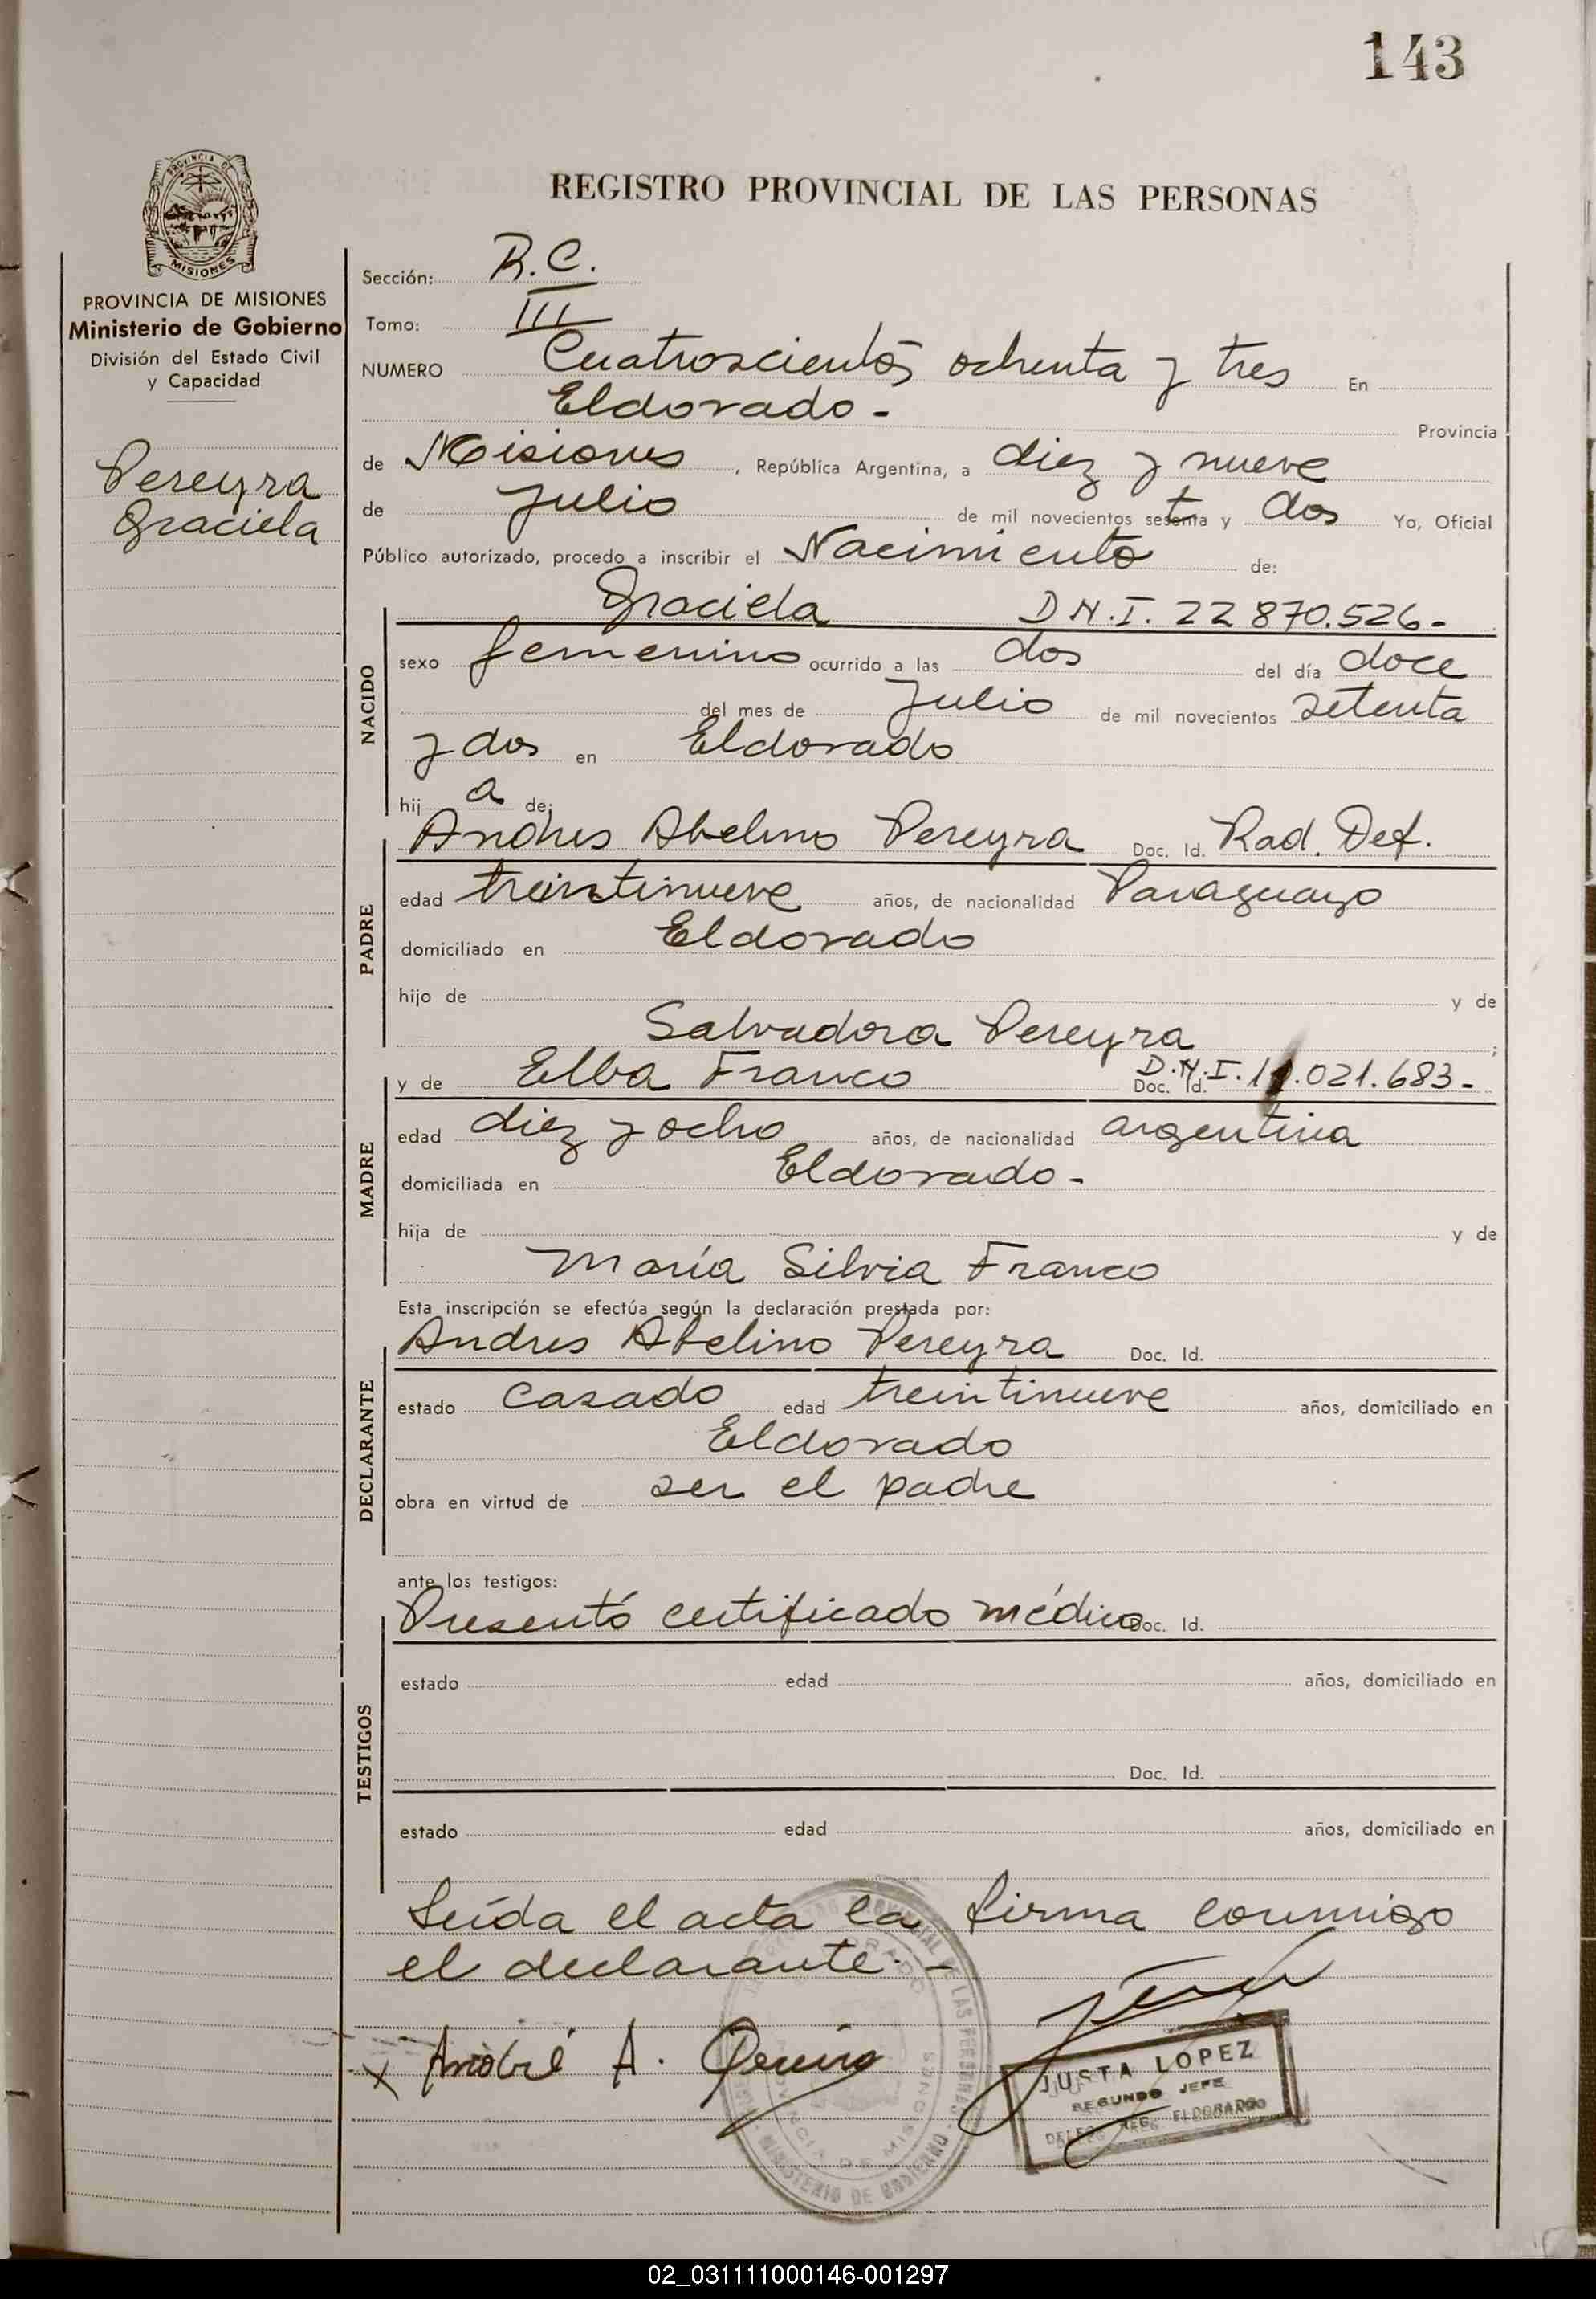 143
PROVINCIA DE
MISIONES
PROVINCIA DE MISIONES
Ministerio de Gobierno
División del Estado Civil
y Capacidad
Pereyra
Graciela
REGISTRO PROVINCIAL DE LAS PERSONAS
Sección: R.C.
Tomo: III
NUMERO Cuatroscientos ochenta y tres En
Eldorado - Provincia
de Misiones, República Argentina, a diez y nueve
de Julio de mil novecientos setenta y dos Yo, Oficial
Público autorizado, procedo a inscribir el Nacimiento de:
Graciela D.N.I. 22 870.526-
NACIDO
sexo femenino ocurrido a las dos del día doce
del mes de Julio de mil novecientos setenta
y dos en Eldorado
hij a de:
PADRE
Andres Abelino Pereyra Doc. Id. Rad. Def.
edad treintinueve años, de nacionalidad Paraguayo
domiciliado en Eldorado
hijo de y de
Salvadora Pereyra ;
MADRE
y de Elba Franco Doc. Id. D.N.I. .021.683-
edad diez y ocho años, de nacionalidad argentina
domiciliada en Eldorado-
hija de y de
María Silvia Franco
Esta inscripción se efectúa según la declaración prestada por:
DECLARANTE
Andres Abelino Pereyra Doc. Id.
estado casado edad treintinueve años, domiciliado en
Eldorado
obra en virtud de ser el padre
ante los testigos:
TESTIGOS
Presentó certificado médico Doc. Id.
estado edad años, domiciliado en
Doc. Id.
estado edad años, domiciliado en
Leída el acta la firma conmigo
el declarante.-
x André A.
JUSTA LOPEZ
SEGUNDO JEFE
DELEG. REG. ELDORADO
REGISTRO PROVINCIAL DE LAS PERSONAS
ELDORADO
PROVINCIA DE MISIONES
MINISTERIO DE GOBIERNO
02_031111000146-001297